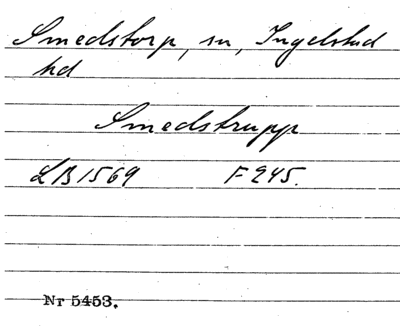 Smedstorp, sn, Ingelstad
hd
Smedstrupp
LB 1569 F 245.
Nr 5453.